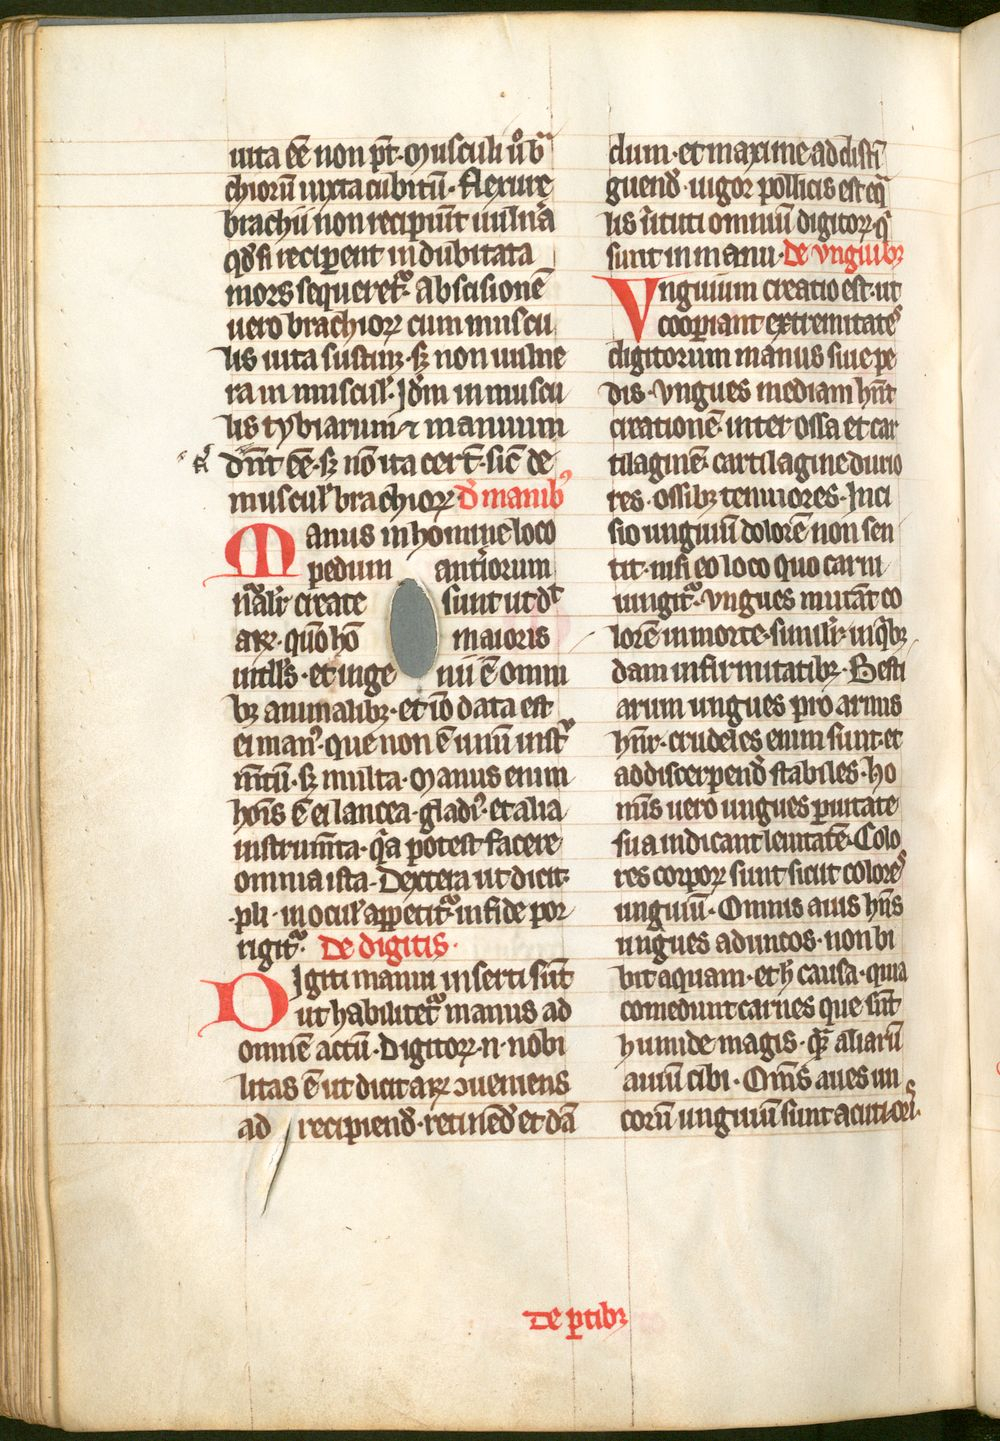 uita ēē non pt̄· Musculi u͛o bͣ
chiorū iuxta cubitū· flexure
brachii non recipiūt uuln̄a
qd̓ si recip̱ent indubitata
mors sequeret᷑· Abscisionē
uero brachioꝝ cum muscu
lis uita sustinꝫ· sꝫ non uulne
ra in muscul᷑· Jdm̄ in muscu
lis tybiarum ⁊ manuum
dn̄t ēē· sꝫ nō ita cert᷑· sic̄ de
muscul᷑ brachioꝝ d̓ manibꝰ
Manus in homine loco
pedum ant̓iorum
nāl᷑r create sunt ut dt͛
ar̄· quō hō maioris
intll᷑s· et inge nii ē omni
bꝫ animalibꝫ· et iō data est
ei manꝰ· que non ē unū inst͛
mn̄tū· sꝫ multa· Manus enim
hoīs ē ei lancea· gladiꝰ· et alia
instrum̄ta· qͣa potest facere
omnia ista· Dextera ut dicit·
·pli· in ocul᷑ app̱etit᷑· in fide por
rigit᷑· De digitis·
Digiti manui inserti sūt
ut habilitet᷑ manus ad
omnē actū· Digitoꝝ· n· nobi
litas ē ut dicit ar̄· ↄueniens
ad recipiend̓· retinēd̓ et dā
dum· et maxime ad disti̅
guend̓· uigor pollicis est eq̄
lis u͛tuti omniū digitoꝝ· q̄
sunt in manu· De vnguibꝫ
Vnguium creatio est· ut
coop̱iant extremitates
digitorum manus siue pe
dis· Vngues mediam hn̄t
creationē· inter ossa et car
tilaginē· cartilagine durio
res· ossibꝫ tenuiores· Jnci
sio unguiū dolorē non sen
tit· nisi eo loco quo carni
iungit᷑· Vngues mutāt co
lorē in morte· simil᷑r· in qi̓bꝫ
dam infirmitatibꝫ· Besti
arum ungues pro armis
hn̄t᷑· crudeles enim sunt· et
ad discerpend̓ stabiles· ho
mīs uero ungues p̱uitate
sua indicant leuitatē· Colo
res corpoꝝ sunt sicut colores
unguiū· Omnis auis hn̄s
ungues aduncos· non bi
bit aquam· et h̄ causa· quia
comedunt carnes que sūt
humide magis· qͣ᷑ aliarū
auiū cibi· Om̄s aues un
corū unguiū sunt acuti·ori͛s·
De p̱tibꝫ